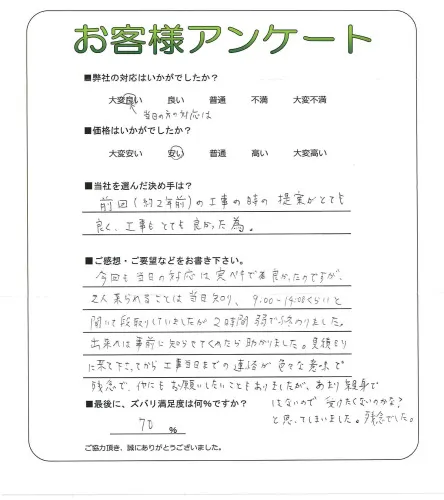 お客様アンケート
■弊社の対応はいかがでしたか？
大変良い 良い 普通 不満 大変不満
当日の方の対応は
■価格はいかがでしたか？
大変安い 安い 普通 高い 大変高い
■当社を選んだ決め手は？
前回(約2年前)の工事の時の提案がとても
良く、工事もとても良かった為。
■ご感想・ご要望などをお書き下さい。
今回も当日の対応は 良かったのですが、
2人来られることは当日知り、9:00~14:00くらいと
聞いて段取りしていましたが2時間弱で終わりました。
出来れば事前に知らせてくれたら助かりました。見積もり
に来て下さってから工事当日までの連絡が色々な意味で
残念で、他にもお願いしたいこともありましたが、あまり親身で
はないので受けたくないのかな？
と思ってしまいました。残念でした。
■最後に、ズバリ満足度は何％ですか？
70 %
ご協力頂き、誠にありがとうございました。